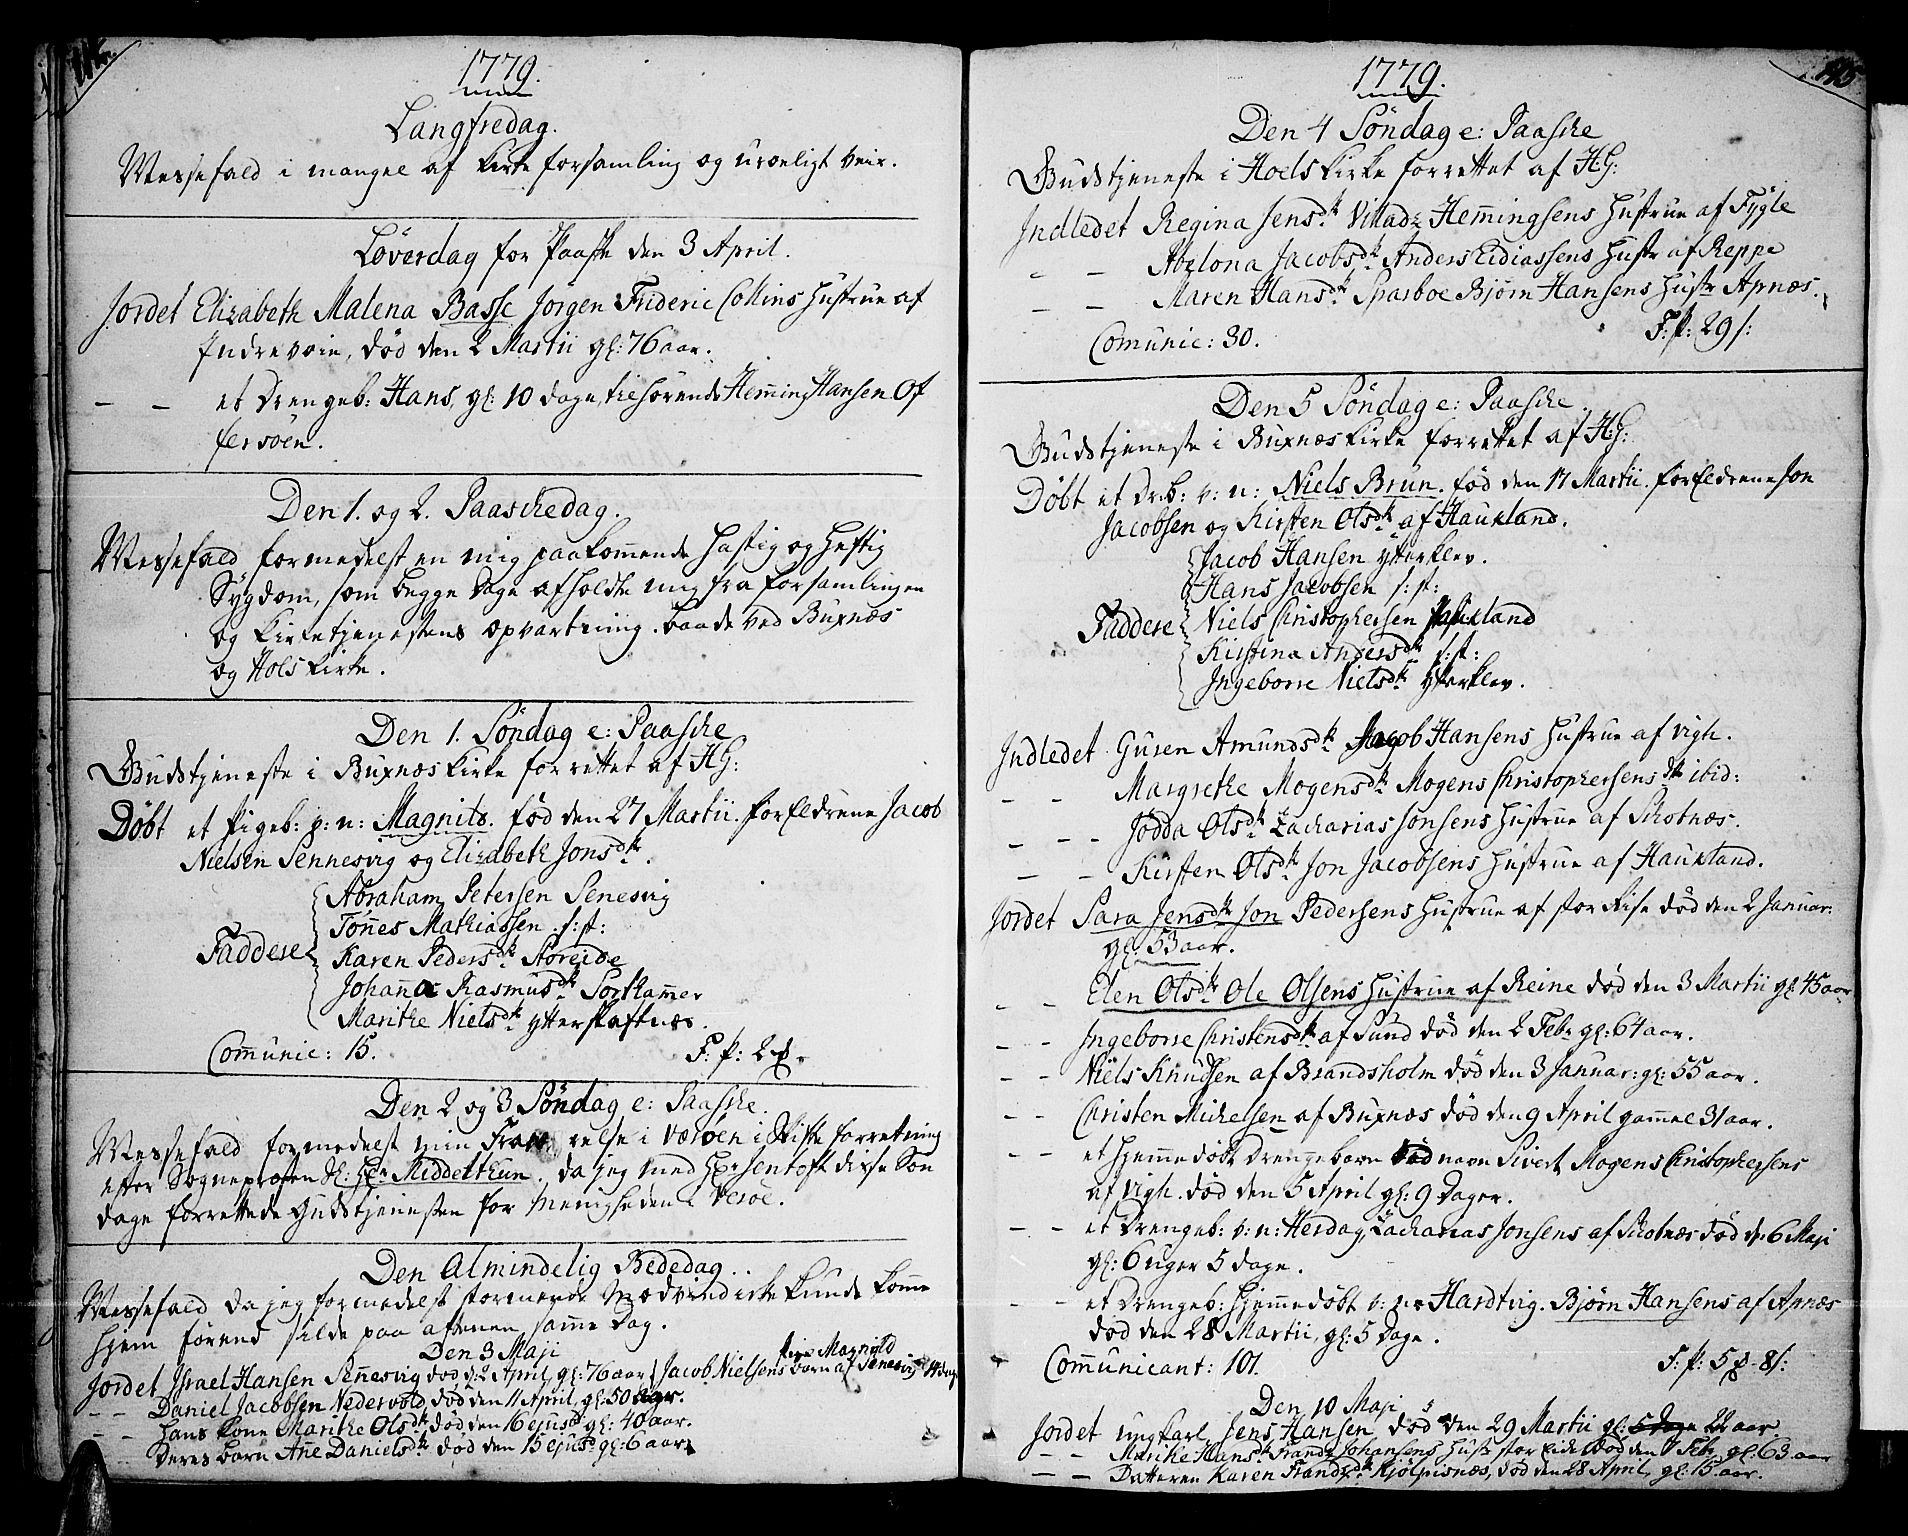 1779.
Langfredag.
Messefald i mangel af Kirke forsamling og uroeligt veir.
Löverdag for Paaske den 3 April.
Jordet Elizabeth Malena Basse Jörgen Frideric Collins Hustrue af
Indrevoie, död den 2 Martii gl: 76 aar.
– – et Drengeb: Hans, gl: 10 dage, tilhörende Hem̄ing Hansen Of
fersöen.
Den 1. og 2. Paaschedag.
Messefald formedelst en mig paakom̄ende hastig og heftig
Sygdom, som begge Dage afholdte mig fra forsamlingen
og Kirketjenestens opvartning baade ved Buxnæs
og Hols Kirke.
Den 1. Söndag e: Paasche
Gudstjeneste i Buxnæs Kirke forrettet af H.G:
Döbt et Pigeb: v: n: Magnito. föd den 27 Martii. forEldrene Jacob
Nielsen Sennesvig og Elizabeth Jonsdtr.
Abraham Petersen Senesvig
Tönnes Mathiassen s: st:
Faddere Karen Pedersdtr Storeide
Johanna Rasmusdtr Sortkam̄er
Marithe Nielsdtr ytterskaftnæs.
Com̄unic: 15. F: p: 2
Den 2 og 3 Söndag e: Paasche.
Messefald formedelst min i Væroen i Skifte forretning
efter Sogneprosten Sl: Hr: Middelthun. da jeg med Hr: Jentoft disse Sön
dage forrettede Gudstjenesten for Menigheden i Veröe.
Den Almindelig Bededag.
Messefald da jeg formedelst stormende Modvind icke kunde kom̄e
hjem förend silde paa aftenen sam̄e Dag.
Den 3 Maji
Jordet Israel Hansen Sen̄esvig död d: 2 April, gl: 76 aar Jacob Nielsens barn af Senesvig
Magnild
– – Daniel Jacobsen Nedervold, död den 11 April, gl: 50 aar.
– – Hans kone Marithe Olsdtr, död den 16 ejusd gl: 40 aar.
Deres barn An̄e Danielsdtr, död den 15 ejusd gl: 6 aar
1779.
Den 4 Söndag e: Paasche
Gudstjeneste i Hoels Kirke forrettet af H.G:
Indledet Regina Jensdtr Villadz Hem̄ingsens Hustrue af Fygle
– – Abelona Jacobsdtr Anders Eidiassens Hustr af Reppe
– – Maren Hansdtr Sparboe Bjørn Hansens Hustr Apnæs.
Comunic: 30. F: p: 29 s:
Den 5 Söndag e: Paasche
Gudstjeneste i Buxnæs Kirke forrettet af H.G:
Döbt et Dr:b: v: n: Niels Brun. föd den 17 Martii. forEldrene Jon
Jacobsen og Kirsten Olsdtr af Hauxland.
Jacob Hansen ytterklev.
Hans Jacobsen s: st:
Faddere Niels Christophersen Hauxland
Kirstina Andersdtr s: st:
Ingeborre Nielsdtr ytterklev.
Indledet Guren Amundsdtr Jacob Hansens Hustrue af vigh.
– – Margrethe Mogensdtr Mogens Christophersens Hr ibid:
– – Jödda Olsdtr Zacharias Jonsens Hustrue af Skotnæs.
– – Kirsten Olsdtr Jon Jacobsens Hustrue af Hauxland.
Jordet Sara Jensdtr Jon Pedersens Hustrue af stor Rise död den 2 Januar:
gl: 53 aar.
– – Elen Olsdtr Ole Olsens Hustrue af Reine död den 3 Martii gl: 45 aar
– – Ingeborre Christensdtr af Sund död den 2 Febr gl: 64 aar.
– – Niels Knudsen af Brandsholm död den 3 Januar: gl: 55 aar.
– – Christen Michelsen af Buxnæs död den 9 April gammel 31 aar.
– – et hjemmedöbt Drengebarn ved navn Sivert Mogens Christophersens
af vigh. död den 5 April gl: 9 Dager.
– – et Drengeb: v: n: Herdag Zacharias Jonsens af Skotnæs död d: 6 Maji
gl: 6 uger 5 dage.
– – et Drengeb: hjemmedöbt v: n: Hardtvig. Bjørn Hansens af Apnæs
död den 28 Martii, gl: 5 Dage.
Com̄unicant: 101. F: p: 5 8 s:
Den 10 Maji
Jordet ungkarl Jens Hansen död den 29 Martii gl: 22 aar.
– – Marithe Hansdtr Frandz Johansens Hustr stor Eide död den 7 Feb gl: 63 aar
– – Datteren Karen Frandzdtr Kjölpisnæs, död den 28 April, gl: 15 aar.